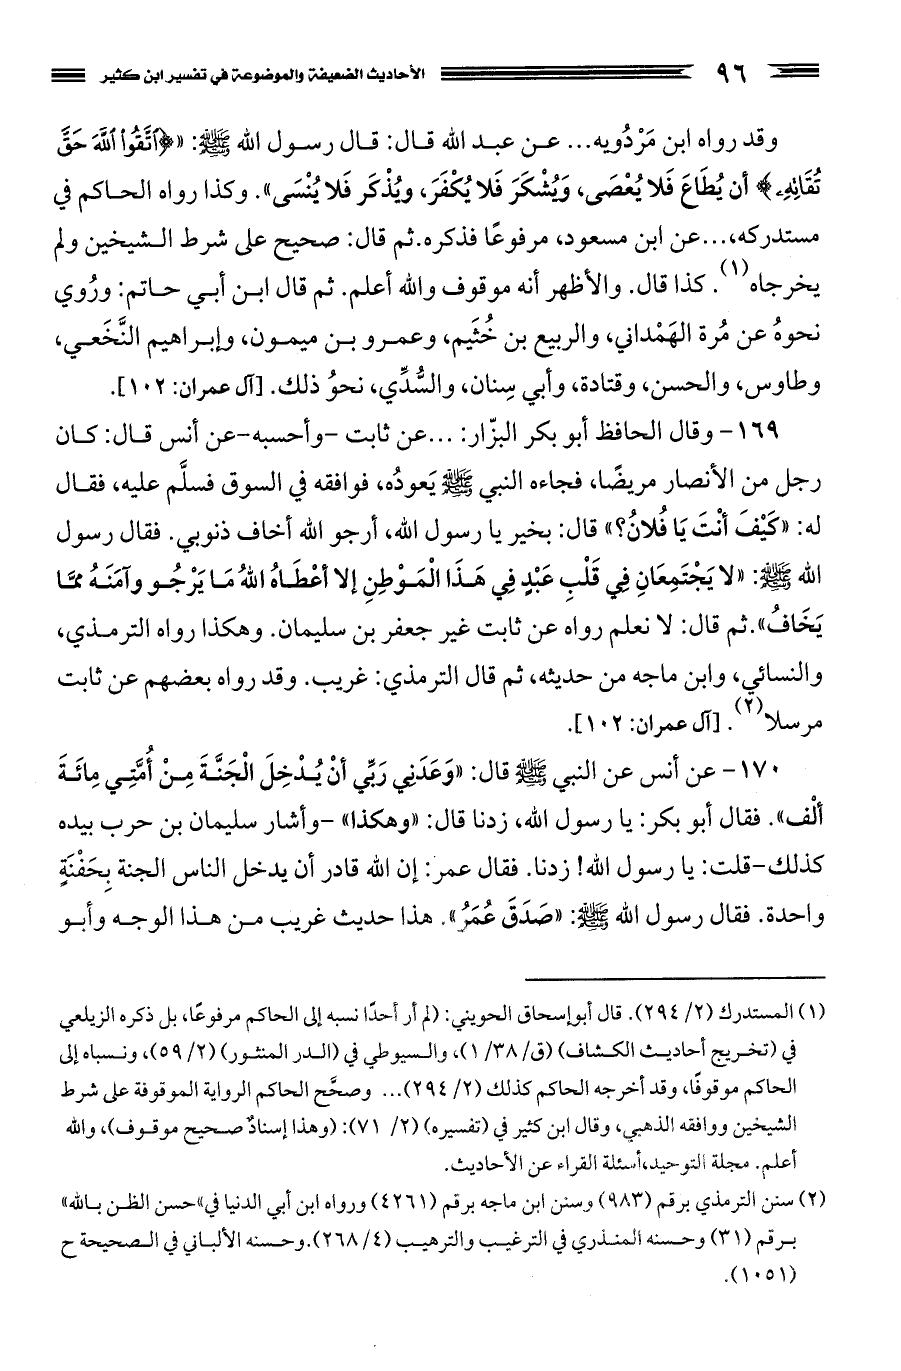 ٩٦ الأحاديث الضعيفة والموضوعة في تفسير ابن كثير
وقد رواه ابن مَرْدُويه... عـن عبـد الله قـال: قـال رسـول الله ﷺ: «﴿ٱتَّقُوا۟ ٱللَّهَ حَقَّ
تُقَاتِهِۦ﴾ أن يُطَاعَ فَلا يُعْصَى، وَيُشْكَرَ فَلا يُكْفَر، ويُذْكَر فَلا يُنْسَى». وكذا رواه الحاكم في
مستدركه،...عن ابن مسعود، مرفوعًا فذكره.ثم قال: صحيح على شرط الشيخين ولم
يخرجاه(١). كذا قال. والأظهر أنه موقوف والله أعلم. ثم قال ابن أبي حاتم: ورُوي
نحوهُ عن مُرة الهَمْداني، والربيع بن خُثَيم، وعمـرو بـن ميمون، وإبـراهيم النَّخَعي،
وطاوس، والحسن، وقتادة، وأبي سِنان، والسُّدِّي، نحوُ ذلك. [آل عمران: ١٠٢].
١٦٩- وقال الحافظ أبو بكر البزّار: ...عن ثابت -وأحسبه-عن أنس قـال: كـان
رجل من الأنصار مريضًا، فجاءه النبي ﷺ يَعودُه، فوافقه في السوق فسلَّم عليه، فقـال
له: «كَيْفَ أنْتَ يَا فُلانُ؟» قال: بخير يا رسول الله، أرجو الله أخاف ذنوبي. فقال رسول
الله ﷺ: «لا يَجْتَمِعَانِ فِي قَلْبِ عَبْدٍ فِي هَـذَا الْمَـوْطِنِ إلا أعْطَـاهُ اللهُ مَـا يَرْجُـو وآمَنَـهُ ممَّـا
يَخَافُ».ثم قال: لا نعلم رواه عن ثابت غير جعفر بن سليمان. وهكذا رواه الترمذي،
والنسائي، وابن ماجه من حديثه، ثم قال الترمذي: غريب. وقد رواه بعضهم عن ثابت
مرسلا(٢). [آل عمران: ١٠٢].
١٧٠- عن أنس عن النبي ﷺ قال: «وَعَدَنِي رَبِّي أنْ يُـدْخِلَ الْجَنَّـةَ مِـنْ أُمَّتِـي مِائَـةَ
ألْف». فقال أبو بكر: يا رسول الله، زدنا قال: «وهكذا» -وأشار سليمان بن حرب بيده
كذلك-قلت: يا رسول الله! زدنا. فقال عمر: إن الله قادر أن يدخل الناس الجنة بِحَفْنَةٍ
واحدة. فقال رسول الله ﷺ: «صَدَقَ عُمَرُ». هذا حديث غريب مـن هـذا الوجـه وأبـو
(١) المستدرك (٢/ ٢٩٤). قال أبوإسحاق الحويني: (لم أر أحدًا نسبه إلى الحاكم مرفوعًا، بل ذكره الزيلعي
في (تخريج أحاديث الكشاف) (ق/ ٣٨/ ١)، والسيوطي في (الدر المنثور) (٢/ ٥٩)، ونسباه إلى
الحاكم موقوفًا، وقد أخرجه الحاكم كذلك (٢/ ٢٩٤)... وصحَّح الحاكم الرواية الموقوفة على شرط
الشيخين ووافقه الذهبي، وقال ابن كثير في (تفسيره) (٢/ ٧١): (وهذا إسنادٌ صحيح موقوف)، والله
أعلم. مجلة التوحيد،أسئلة القراء عن الأحاديث.
(٢) سنن الترمذي برقم (٩٨٣) وسنن ابن ماجه برقم (٤٢٦١) ورواه ابن أبي الدنيا في«حسن الظن بـالله»
بـرقم (٣١) وحسنه المنذري في الترغيب والترهيب (٤/ ٢٦٨).وحسنه الألباني في الصحيحة ح
(١٠٥١).